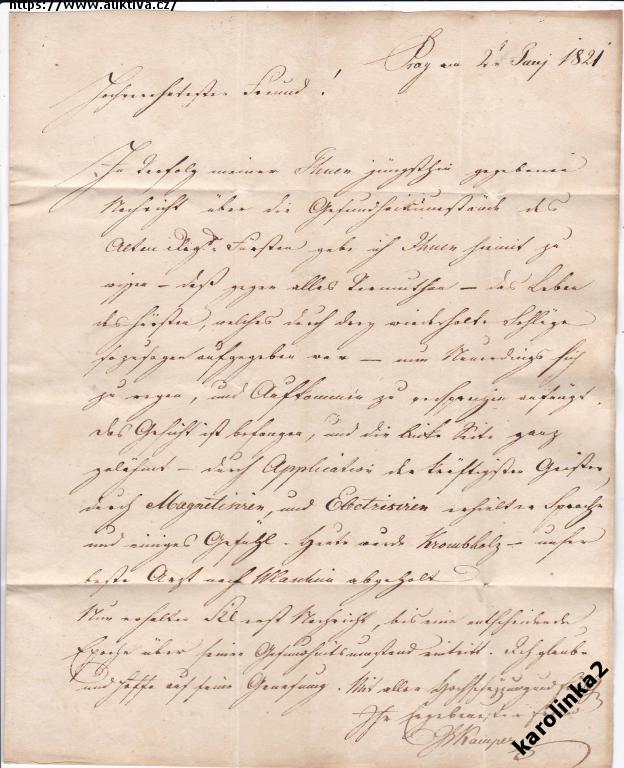 https://www.auktiva.cz/
Prag am 2n Junj 1821
Hochverehrtester Freund!
In Verfolg meiner Ihnen jüngsthin gegebenen
Nachricht über die Gesundheitsumstände des
Alten Fürsten gebe ich Ihnen hiemit zu
wissen – daß gegen alles Vermuthen – das Leben
des Fürsten, welches durch drey wiederholte Schläge
sozusagen aufgegeben war – nun Neuerdings sich
zu regen, und Aufkommen zu versprechen anfängt.
Das Gesicht ist befangen, und die linke Seite ganz
gelähmt – durch Application der kräftigsten Geister,
durch Magnetisiren, und Electrisiren erhielt er Sprache
und einiges Gefühl. Heute wurde Krombholz – unser
beste Arzt nach Wlaschim abgeholt
Nun erhalten Sie erst Nachricht, bis eine entscheidende
Epoche über seinen Gesundheitsumstand eintritt. Ich glaube
und hoffe auf seine Genesung. Mit aller Hochschätzung und
Ihr Ergebenster
Kamper
karolinka2